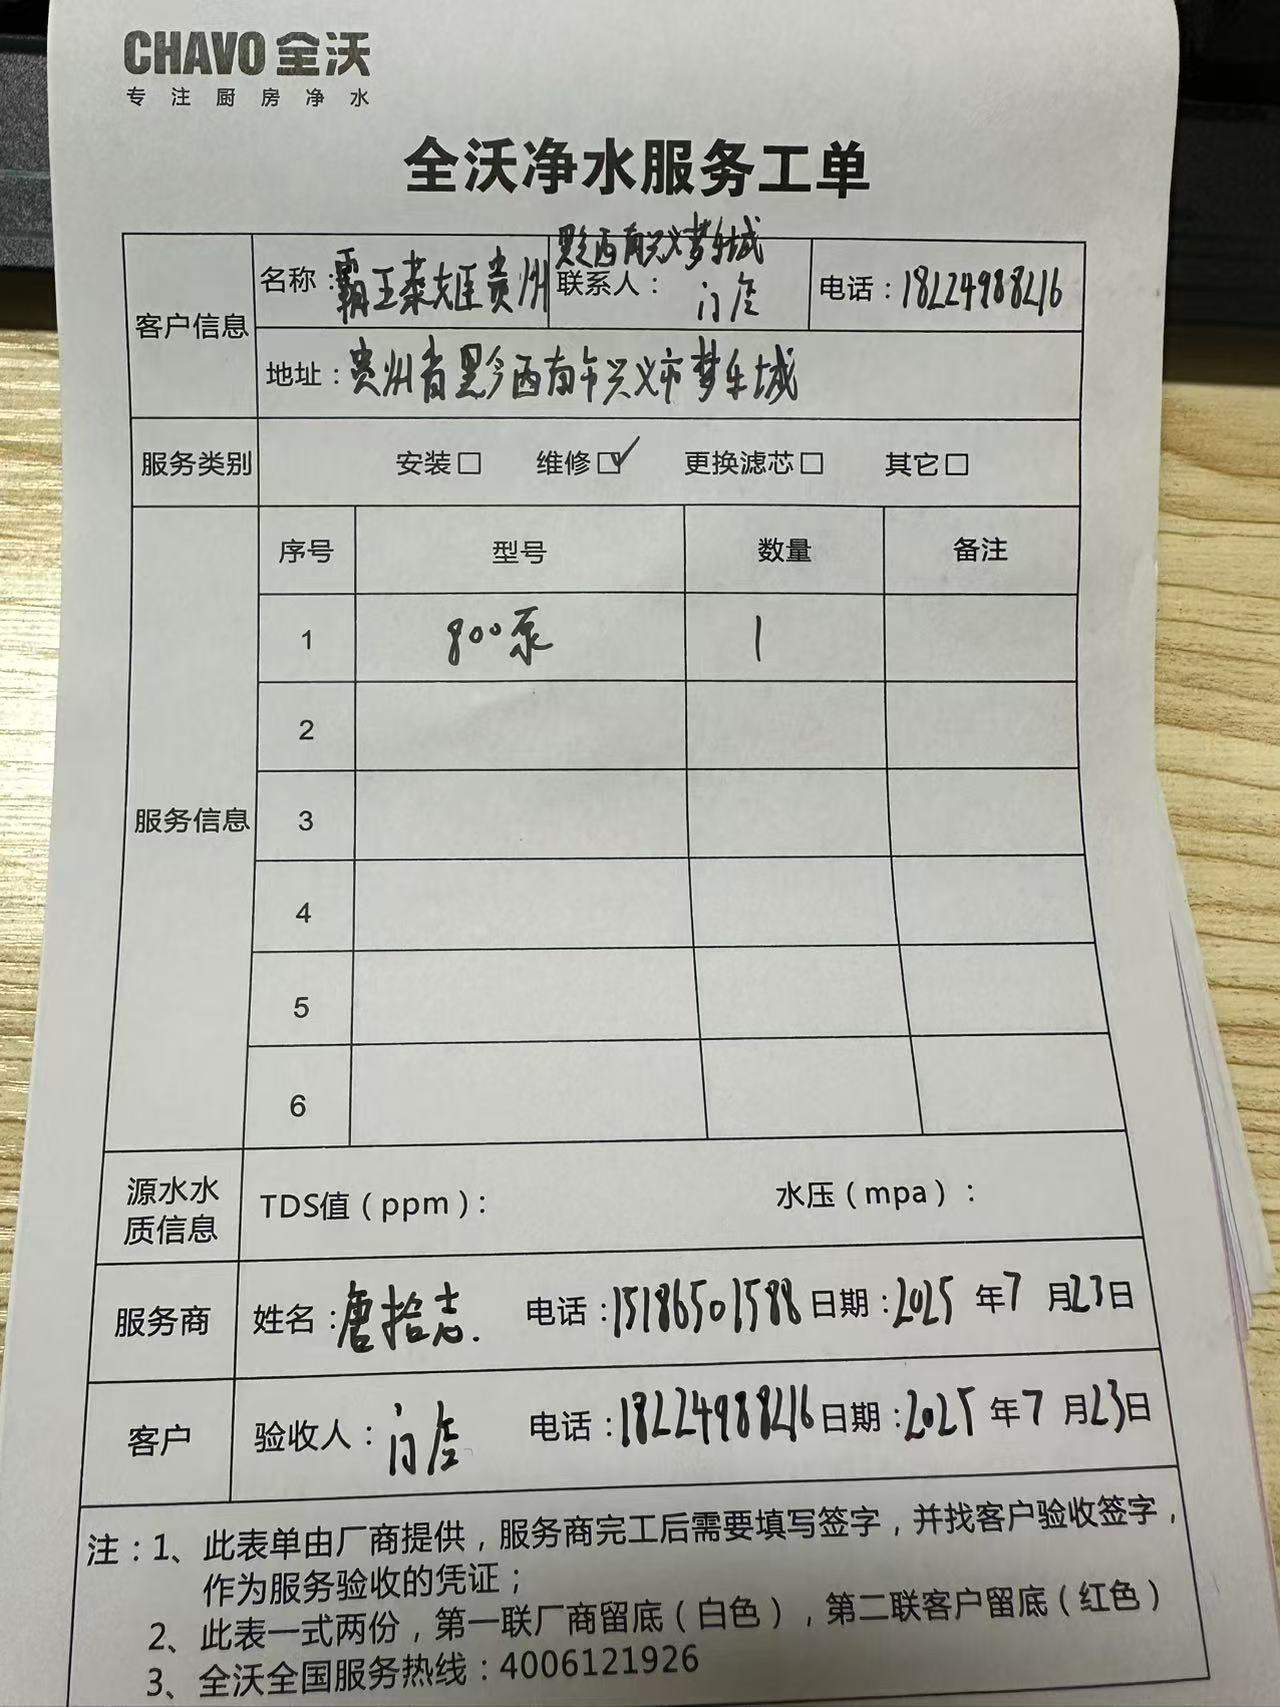 CHAVO 全沃
专注厨房净水
全沃净水服务工单
客户信息
名称：霸王菜大臣贵州黔西南兴义梦乐城
联系人：门店
电话：18224988216
地址：贵州省黔西南州兴义市梦乐城
服务类别 安装□ 维修☑ 更换滤芯□ 其它□
服务信息
序号 型号 数量 备注
1 800泵 1
2
3
4
5
6
源水水质信息 TDS值（ppm）： 水压（mpa）：
服务商 姓名：唐拾志. 电话：15186501588 日期：2025年7月23日
客户 验收人：门店 电话：18224988216 日期：2025年7月23日
注：1、此表单由厂商提供，服务商完工后需要填写签字，并找客户验收签字，
作为服务验收的凭证；
2、此表一式两份，第一联厂商留底（白色），第二联客户留底（红色）
3、全沃全国服务热线：4006121926